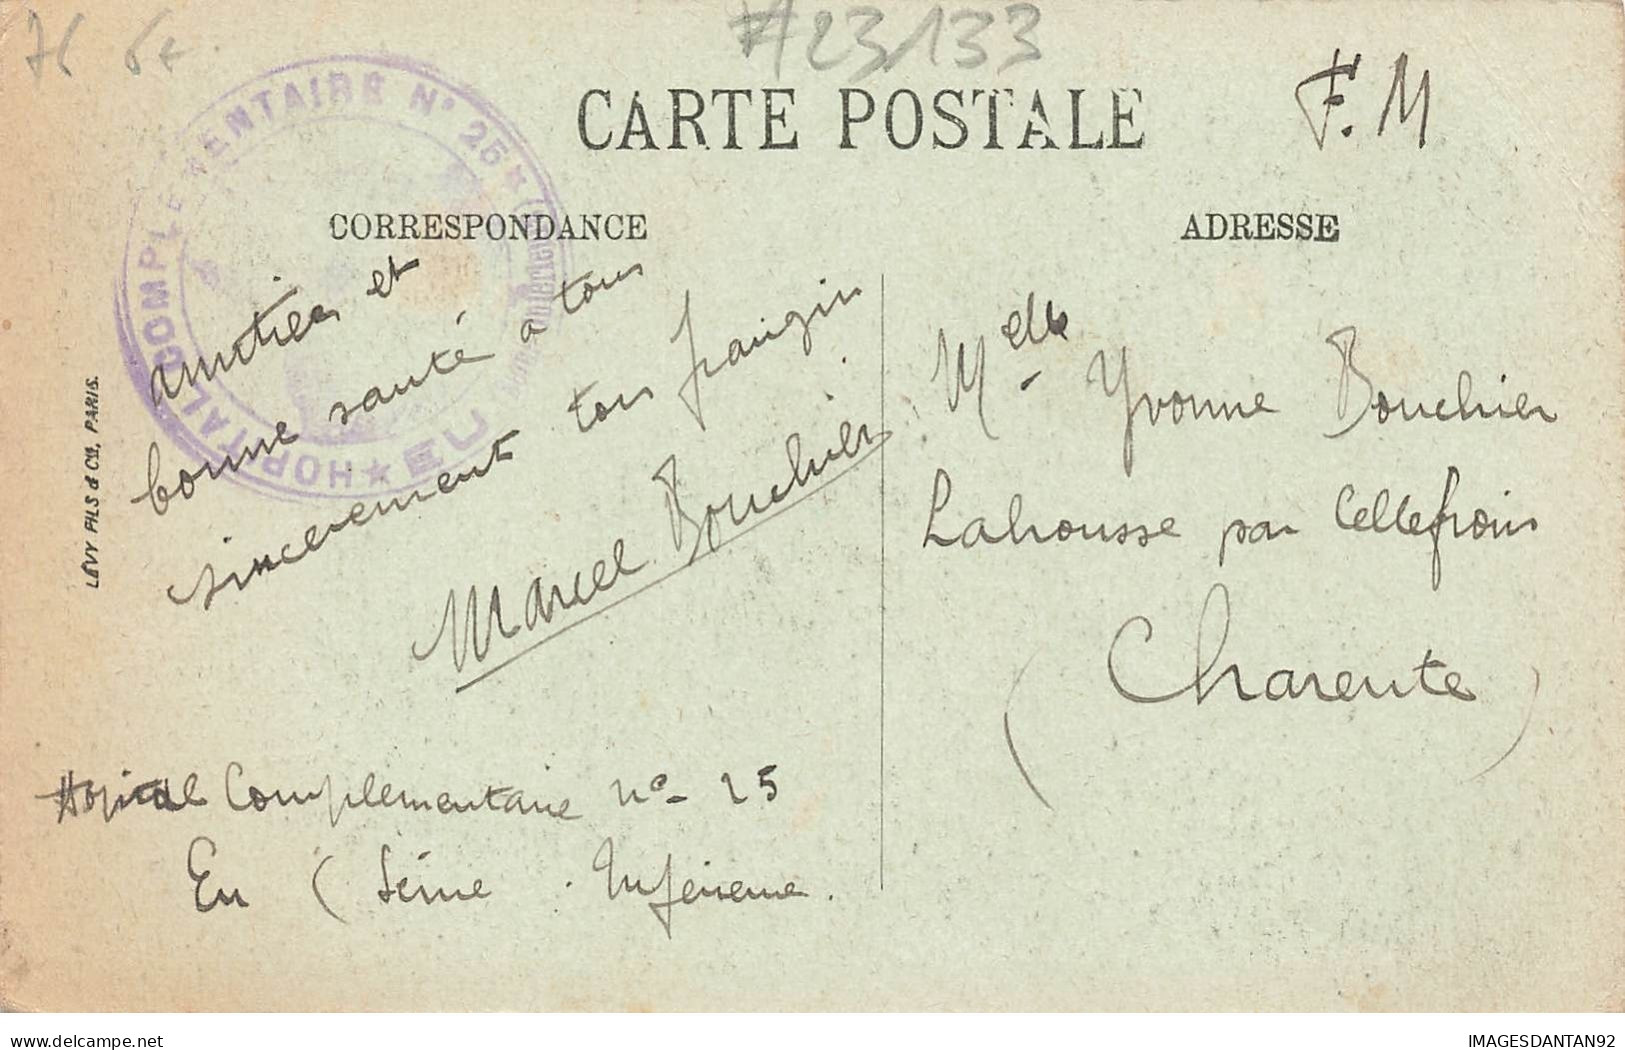 76 6+
#23133
CARTE POSTALE
F. M
HOPITAL COMPLEMENTAIRE N° 25 ★ EU ★
CORRESPONDANCE
ADRESSE
amitiés et
bonne santé a tous
sincerement ton frangin
Marcel Bouchier
Hopital Complementaire n°- 25
Eu ( Seine . Inferieure .
Melle Yvonne Bouchier
Lahousse par Cellefrouin
( Charente )
LÉVY FILS & Cie, PARIS.
delcampe.net
IMAGESDANTAN92